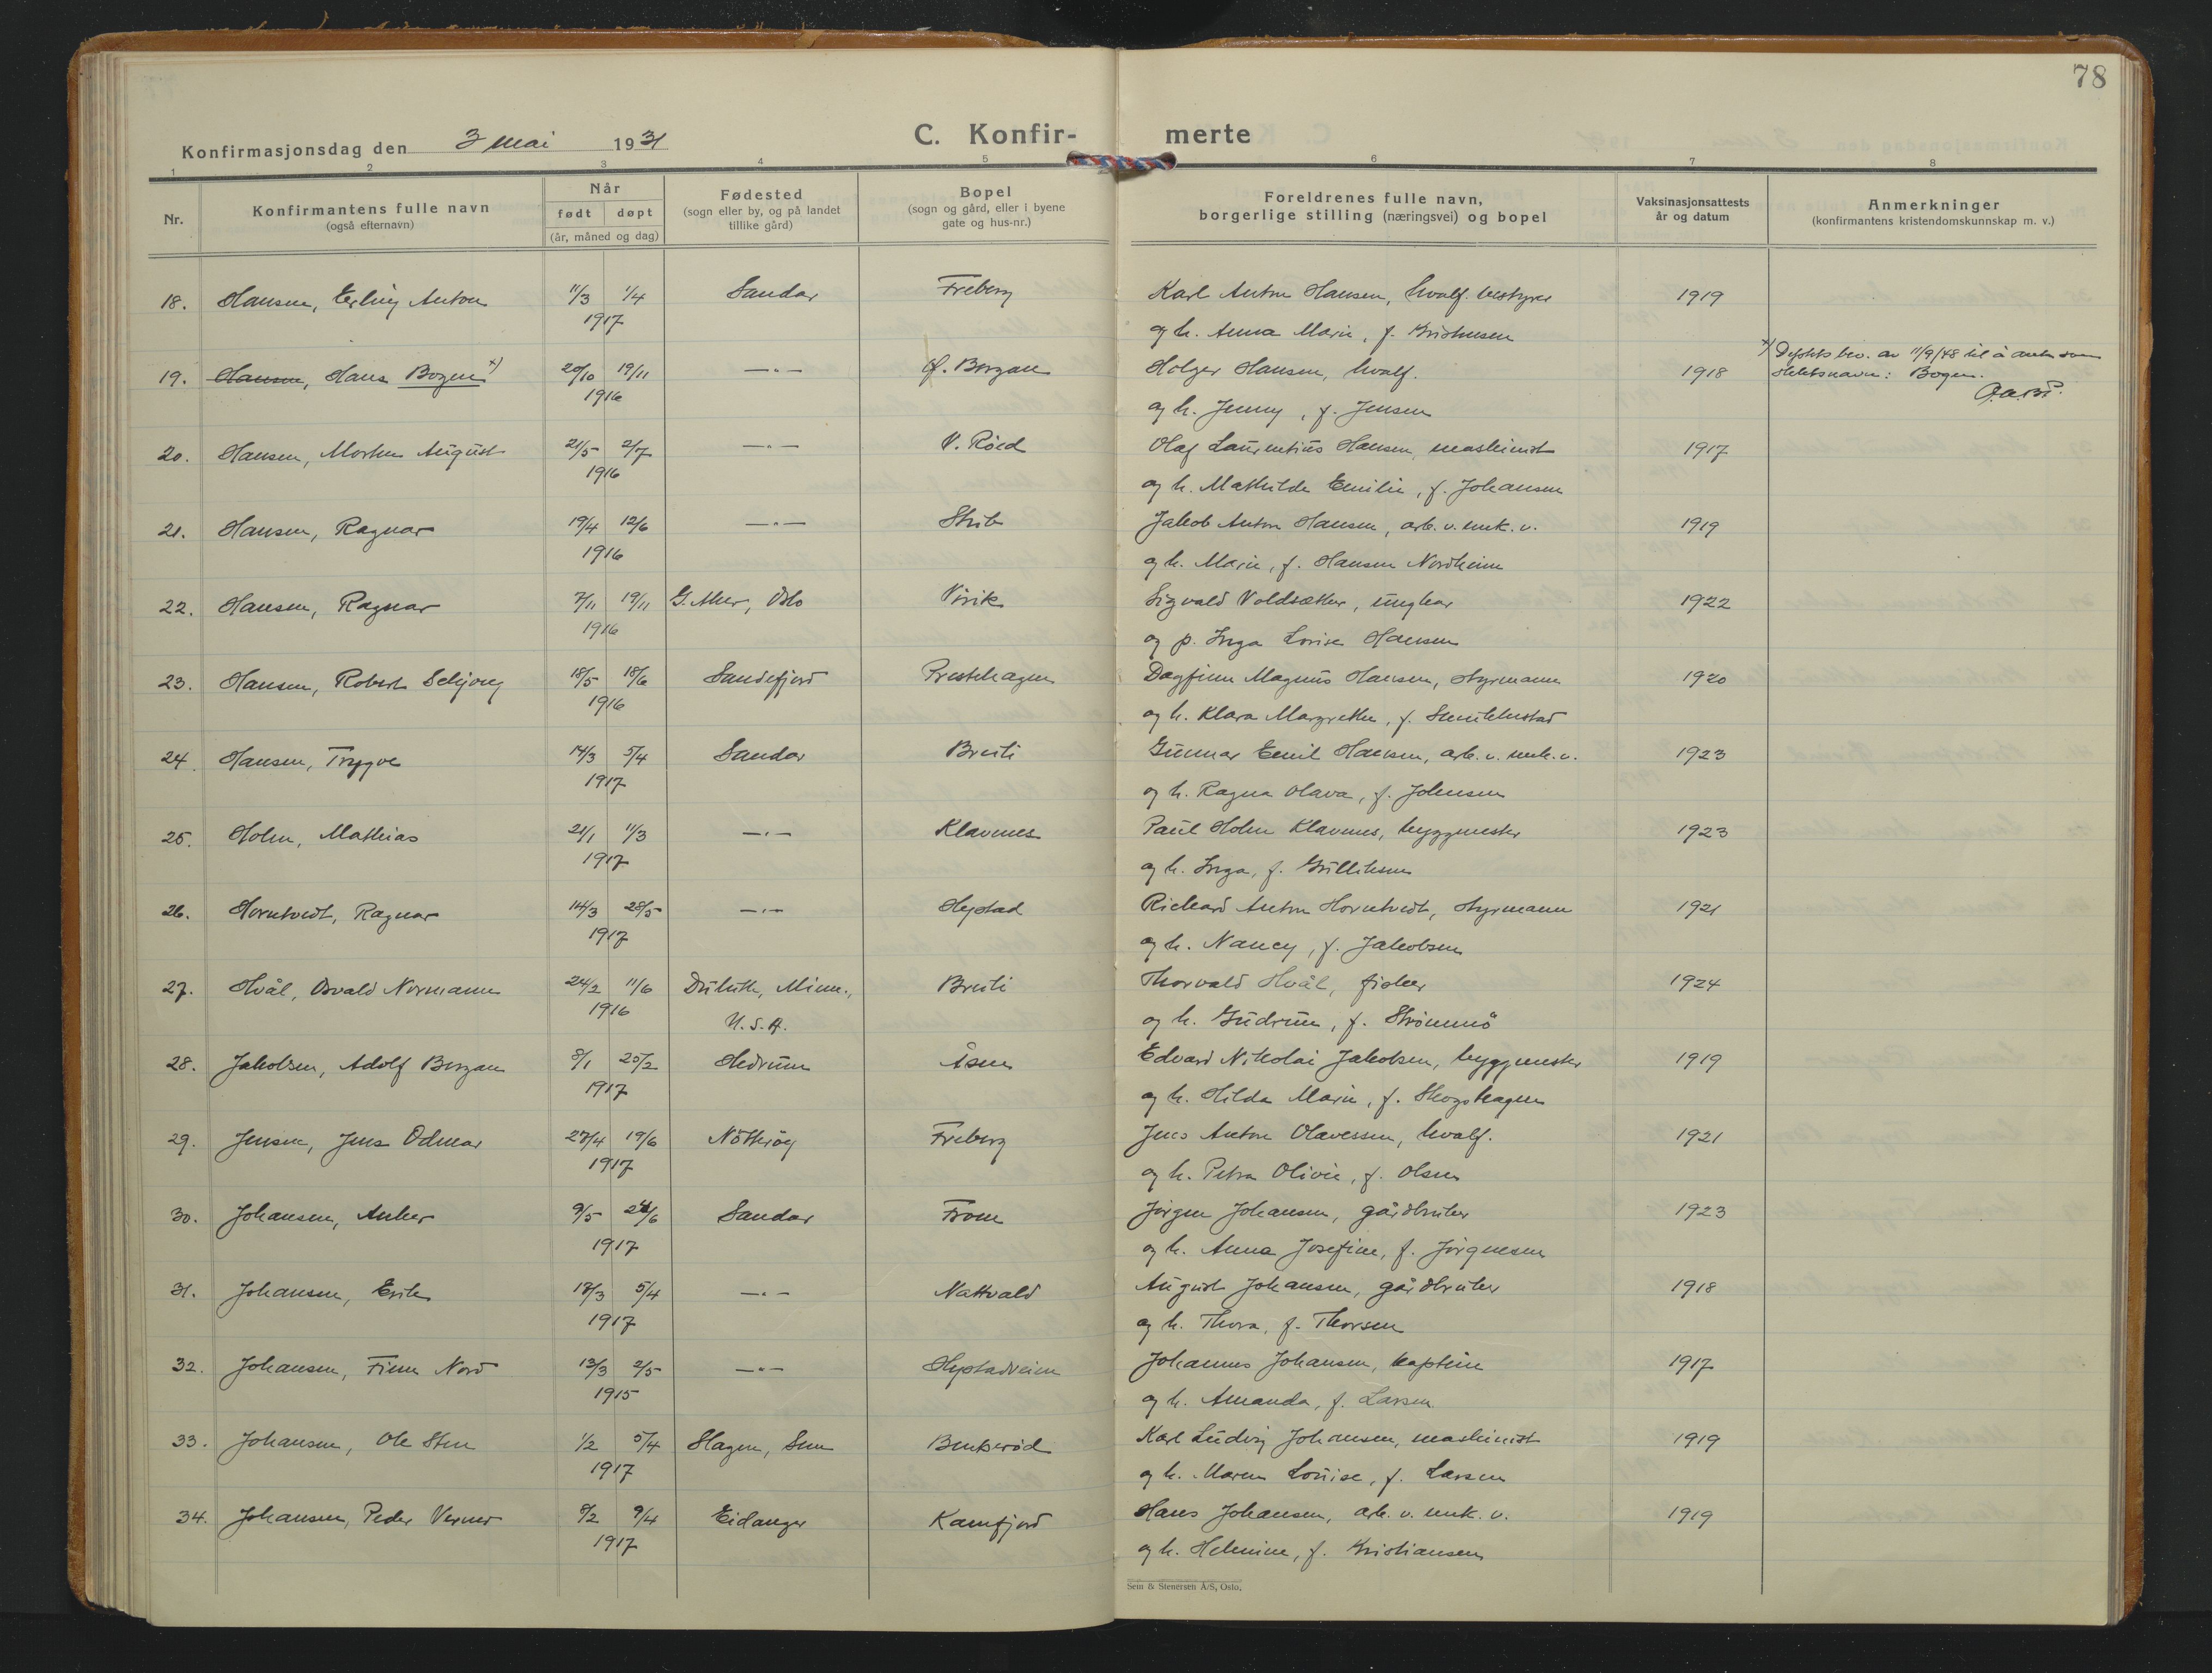 78
Konfirmasjonsdag den 3 mai 1931
C. Konfir- merte
1 2 3 4 5 6 7 8
Nr.
Konfirmantens fulle navn
(også efternavn)
Når
født døpt
(år, måned og dag)
Fødested
(sogn eller by, og på landet
tillike gård)
Bopel
(sogn og gård, eller i byene
gate og hus-nr.)
Foreldrenes fulle navn,
borgerlige stilling (næringsvei) og bopel
Vaksinasjonsattests
år og datum
Anmerkninger
(konfirmantens kristendomskunnskap m. v.)
18. Hansen, Erling Anton 11/3 1/4 Sandar Freberg Karl Anton Hansen, hvalf. bestyrer 1919
1917 og h. Anna Marie, f. Kristensen
x) Deptets bev. av 11/9/48 til å anta som
19. Hansen, Hans Bogen x) 20/10 19/11 —"— Ø. Bergan Holger Hansen, hvalf. 1918 slektsnavn: Bogen.
1916 og h. Jenny, f. Jensen
20. Hansen, Morten August 21/5 2/7 —"— V. Røed Olaf Laurentius Hansen, maskinist 1917
1916 og h. Mathilde Emilie, f. Johansen
21. Hansen, Ragnar 19/4 12/6 —"— Strib Jakob Anton Hansen, arb. v. mek. v. 1919
1916 og h. Marie, f. Hansen Nordheim
22. Hansen, Ragnar 7/11 19/11 G. Aker, Oslo Virik Sigvald Voldsæther, ungkar 1922
1916 og p. Inga Lovise Hansen
23. Hansen, Robert Schjong 18/5 18/6 Sandefjord Prestehagen Dagfinn Magnus Hansen, styrmann 1920
1916 og h. Klara Margrethe, f.
24. Hansen, Trygve 14/3 5/4 Sandar Breili Gunnar Emil Hansen, arb. v. mek. v. 1923
1917 og h. Ragna Olava, f. Johnsen
25. Holm, Mathias 21/1 11/3 —"— Klavenes Paul Holm Klavenes, byggmester 1923
1917 og h. Inga, f. Gulliksen
26. Horntvedt, Ragnar 14/3 28/5 —"— Hystad Richard Anton Horntvedt, styrmann 1921
1917 og h. Nancy, f. Jakobsen
27. Hvål, Osvald Normann 24/2 11/6 Duluth, Minn., Breili Thorvald Hvål, fisker 1924
1916 U.S.A. og h. Gudrun, f. Strömmö
28. Jakobsen, Adolf Bergan 8/1 25/2 Hedrum Åsen Edvard Nikolai Jakobsen, byggmester 1919
1917 og h. Hilda Marie, f. Skogshagen
29. Jensen, Jens Odmar 27/4 19/6 Nötteröy Freberg Jens Anton Olavessen, hvalf. 1921
1917 og h. Petra Olivie, f. Olsen
30. Johansen, Anker 9/5 24/6 Sandar Fröm Jörgen Johansen, gårdbruker 1923
1917 og h. Anna Josefine, f. Jörgensen
31. Johansen, Erik 17/3 5/4 —"— Nattvald August Johansen, gårdbruker 1918
1917 og h. Thora, f. Thorsen
32. Johansen, Finn Nord 13/3 2/5 —"— Hystadveien Johannes Johansen, kaptein 1917
1915 og h. Amanda, f. Larsen
33. Johansen, Ole Sten 1/2 5/4 Slagen, Sem Bukeröd Karl Ludvig Johansen, maskinist 1919
1917 og h. Maren Louise, f. Larsen
34. Johansen, Peder Verner 8/2 9/4 Eidanger Kamfjord Hans Johansen, arb. v. mek. v. 1919
1917 og h. Helmine, f. Kristiansen
Sem & Stenersen A/S, Oslo.